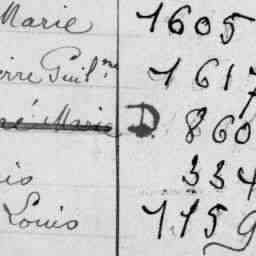 Marie 1605
erre Guil.me 1617
né Marie D. 860
is 334
Louis 1159